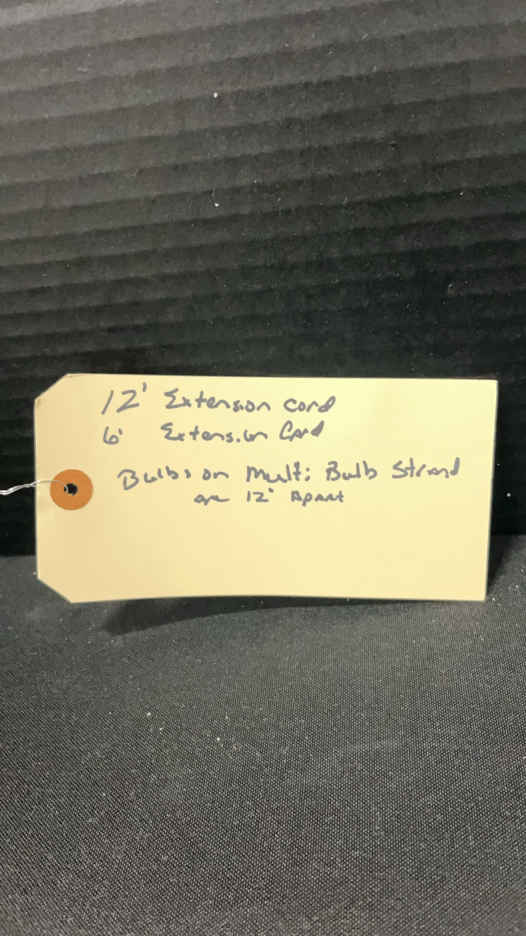 12' Extension cord
6' Extension Cord
Bulbs on Multi Bulb Strand
are 12" Apart